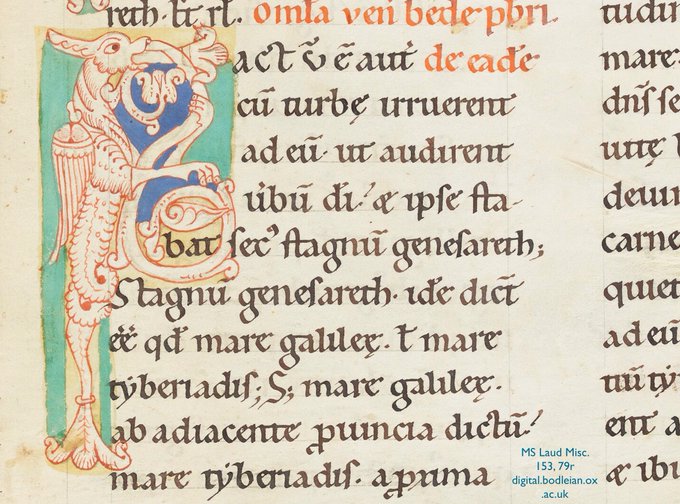 reth. et rl. Omła ven̄ bede p̄bri.
Fact̄ v̄ ē aut̄ de eadē
cū turbę irruerent
ad eū. ut audirent
u͛bū dı̄. & ipse sta-
bat sec̓ stagnū genesareth;
Stagnū genesareth. idē dict̄
eē qđ mare galileę. ł mare
tyberiadis; S; mare galileę.
ab adiacente ꝓuincia dictū.
mare tyberiadis. a ꝓxima
tudin
mare
dn̄s se
uttę
deui
carne
quiet
ad eū
tiū ty
ent a
& ibi
MS Laud Misc.
153, 79r
digital.bodleian.ox
.ac.uk